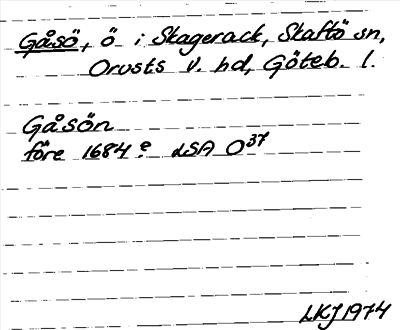 Gåsö, ö i Skagerack, Skaftö sn,
Orusts V. hd, Göteb. l.
Gåsön
före 1684? LSA O37
LKJ 1974